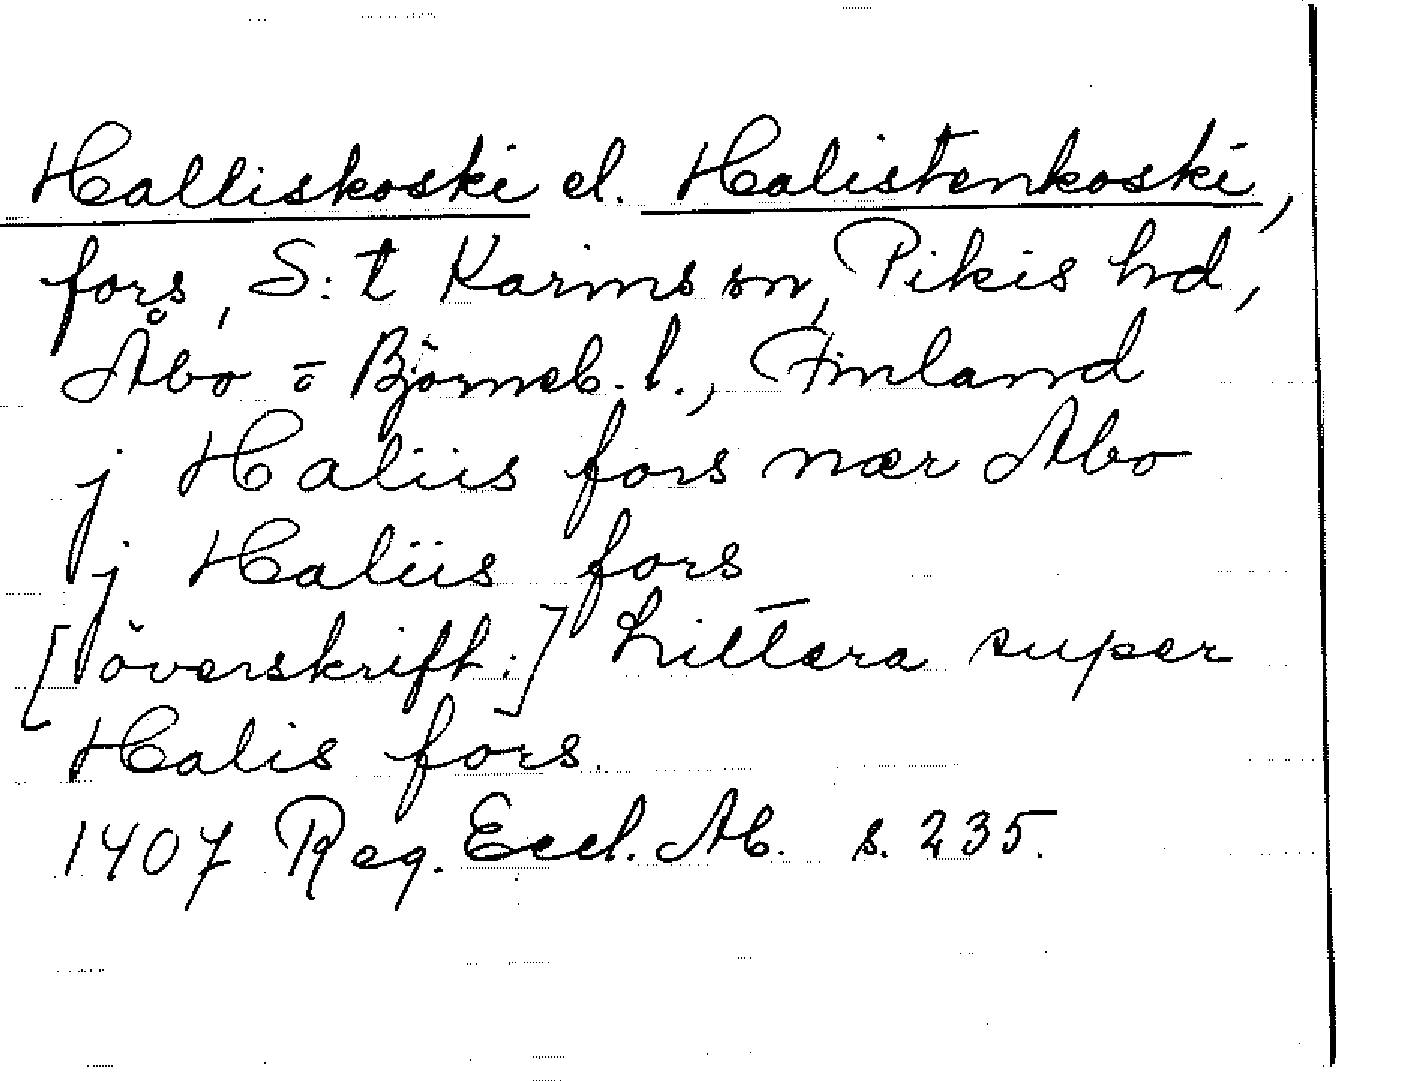 Halliskoski el. Halistenkoski,
fors, S:t Karins sn, Pikis hd,
Åbo o Björneb. l., Finland
j Haliis fors nær Abo
j Haliis fors
[överskrift:] Littera super
Halis fors.
1407 Reg. Eccl. Ab. s. 235.